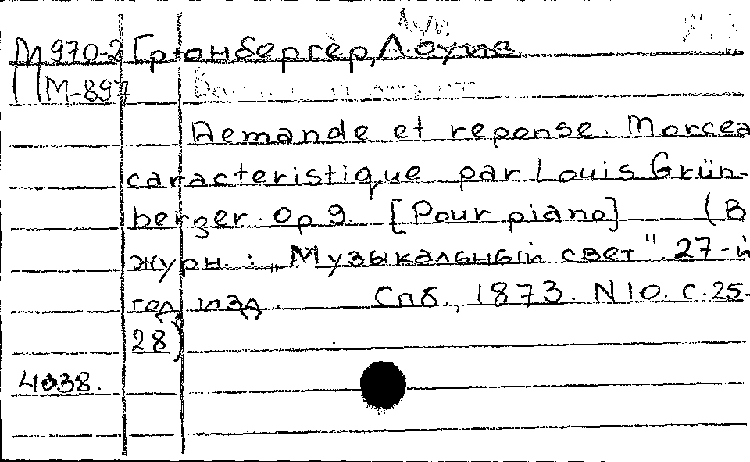 М970-2 Грюнбергер, Луиа
МM-897
Demande et reponse. Morcea
caracteristique par Louis Grün-
berger. Op 9. [Pour piano] (В
журн.: „Музыкальный свет" 27-й
год изд. Спб., 1873. N10. с. 25-
28)
4038.